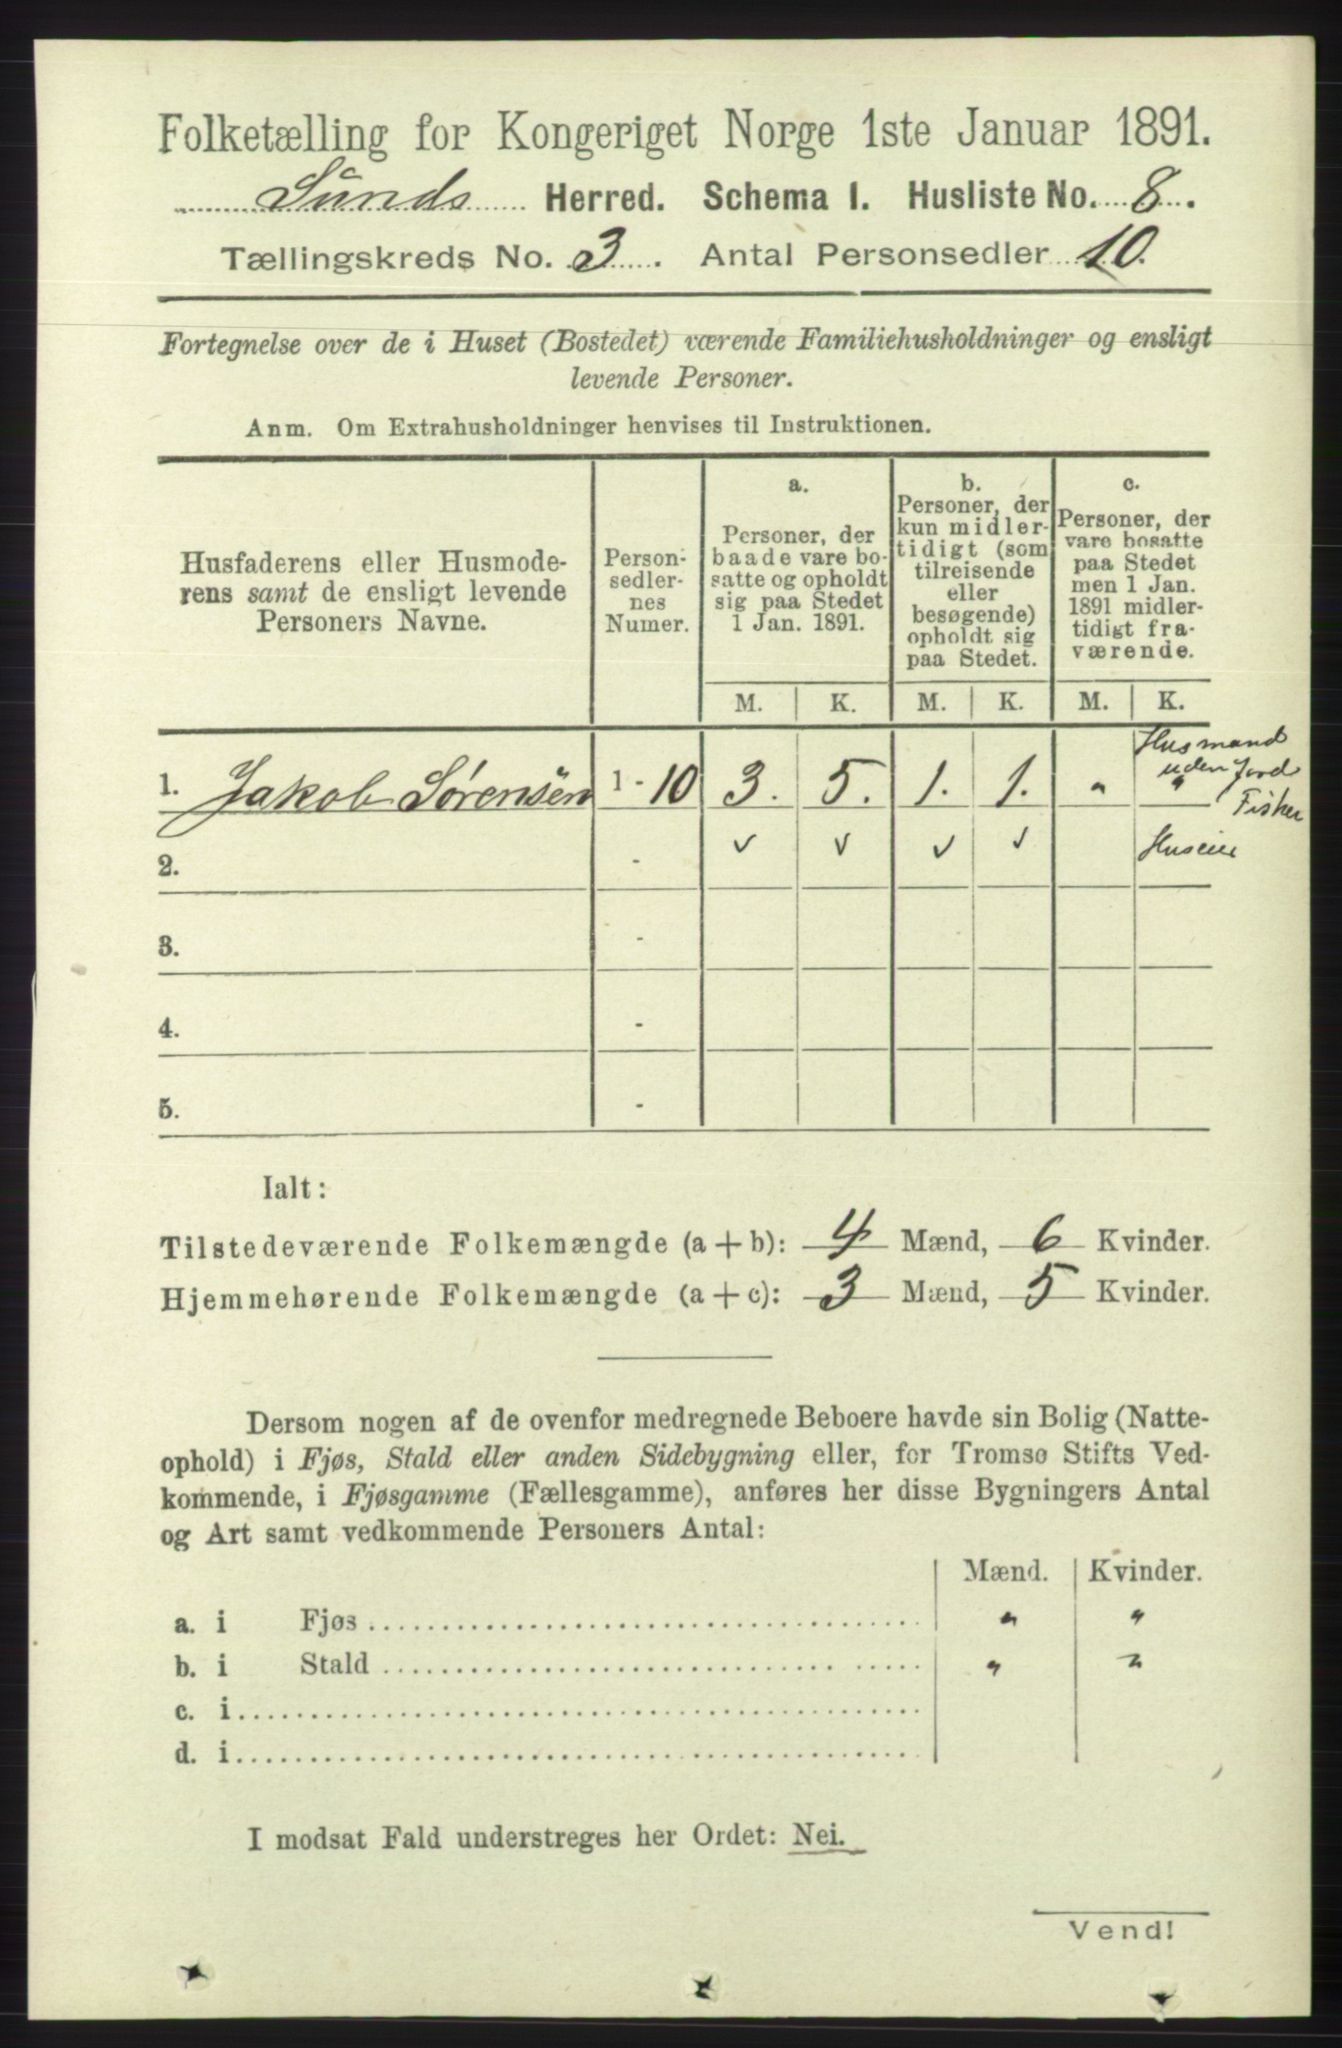 Folketælling for Kongeriget Norge 1ste Januar 1891.
Sunds Herred. Schema I. Husliste No. 8.
Tællingskreds No. 3. Antal Personsedler 10.
Fortegnelse over de i Huset (Bostedet) værende Familiehusholdninger og ensligt
levende Personer.
Anm. Om Extrahusholdninger henvises til Instruktionen.
Husfaderens eller Husmode-
rens samt de ensligt levende
Personers Navne.
Person-
sedler-
nes
Numer.
a.
Personer, der
baade vare bo-
satte og opholdt
sig paa Stedet
1 Jan. 1891.
b.
Personer, der
kun midler-
tidigt (som
tilreisende
eller
besøgende)
opholdt sig
paa Stedet.
c.
Personer, der
vare bosatte
paa Stedet
men 1 Jan.
1891 midler-
tidigt fra-
værende.
M. K. M. K. M. K.
Husmand
uden Jord
Fisker
1. Jakob Sørensen 1 - 10 3. 5. 1. 1. " "
2. - ✓ ✓ ✓ ✓ Huseier
3. -
4. -
5. -
Ialt:
Tilstedeværende Folkemængde (a + b): 4 Mænd, 6 Kvinder.
Hjemmehørende Folkemængde (a + c): 3 Mænd, 5 Kvinder.
Dersom nogen af de ovenfor medregnede Beboere havde sin Bolig (Natte-
ophold) i Fjøs, Stald eller anden Sidebygning eller, for Tromsø Stifts Ved-
kommende, i Fjøsgamme (Fællesgamme), anføres her disse Bygningers Antal
og Art samt vedkommende Personers Antal:
Mænd. Kvinder.
a. i Fjøs " "
b. i Stald " "
c. i
d. i
I modsat Fald understreges her Ordet: Nei.
Vend!